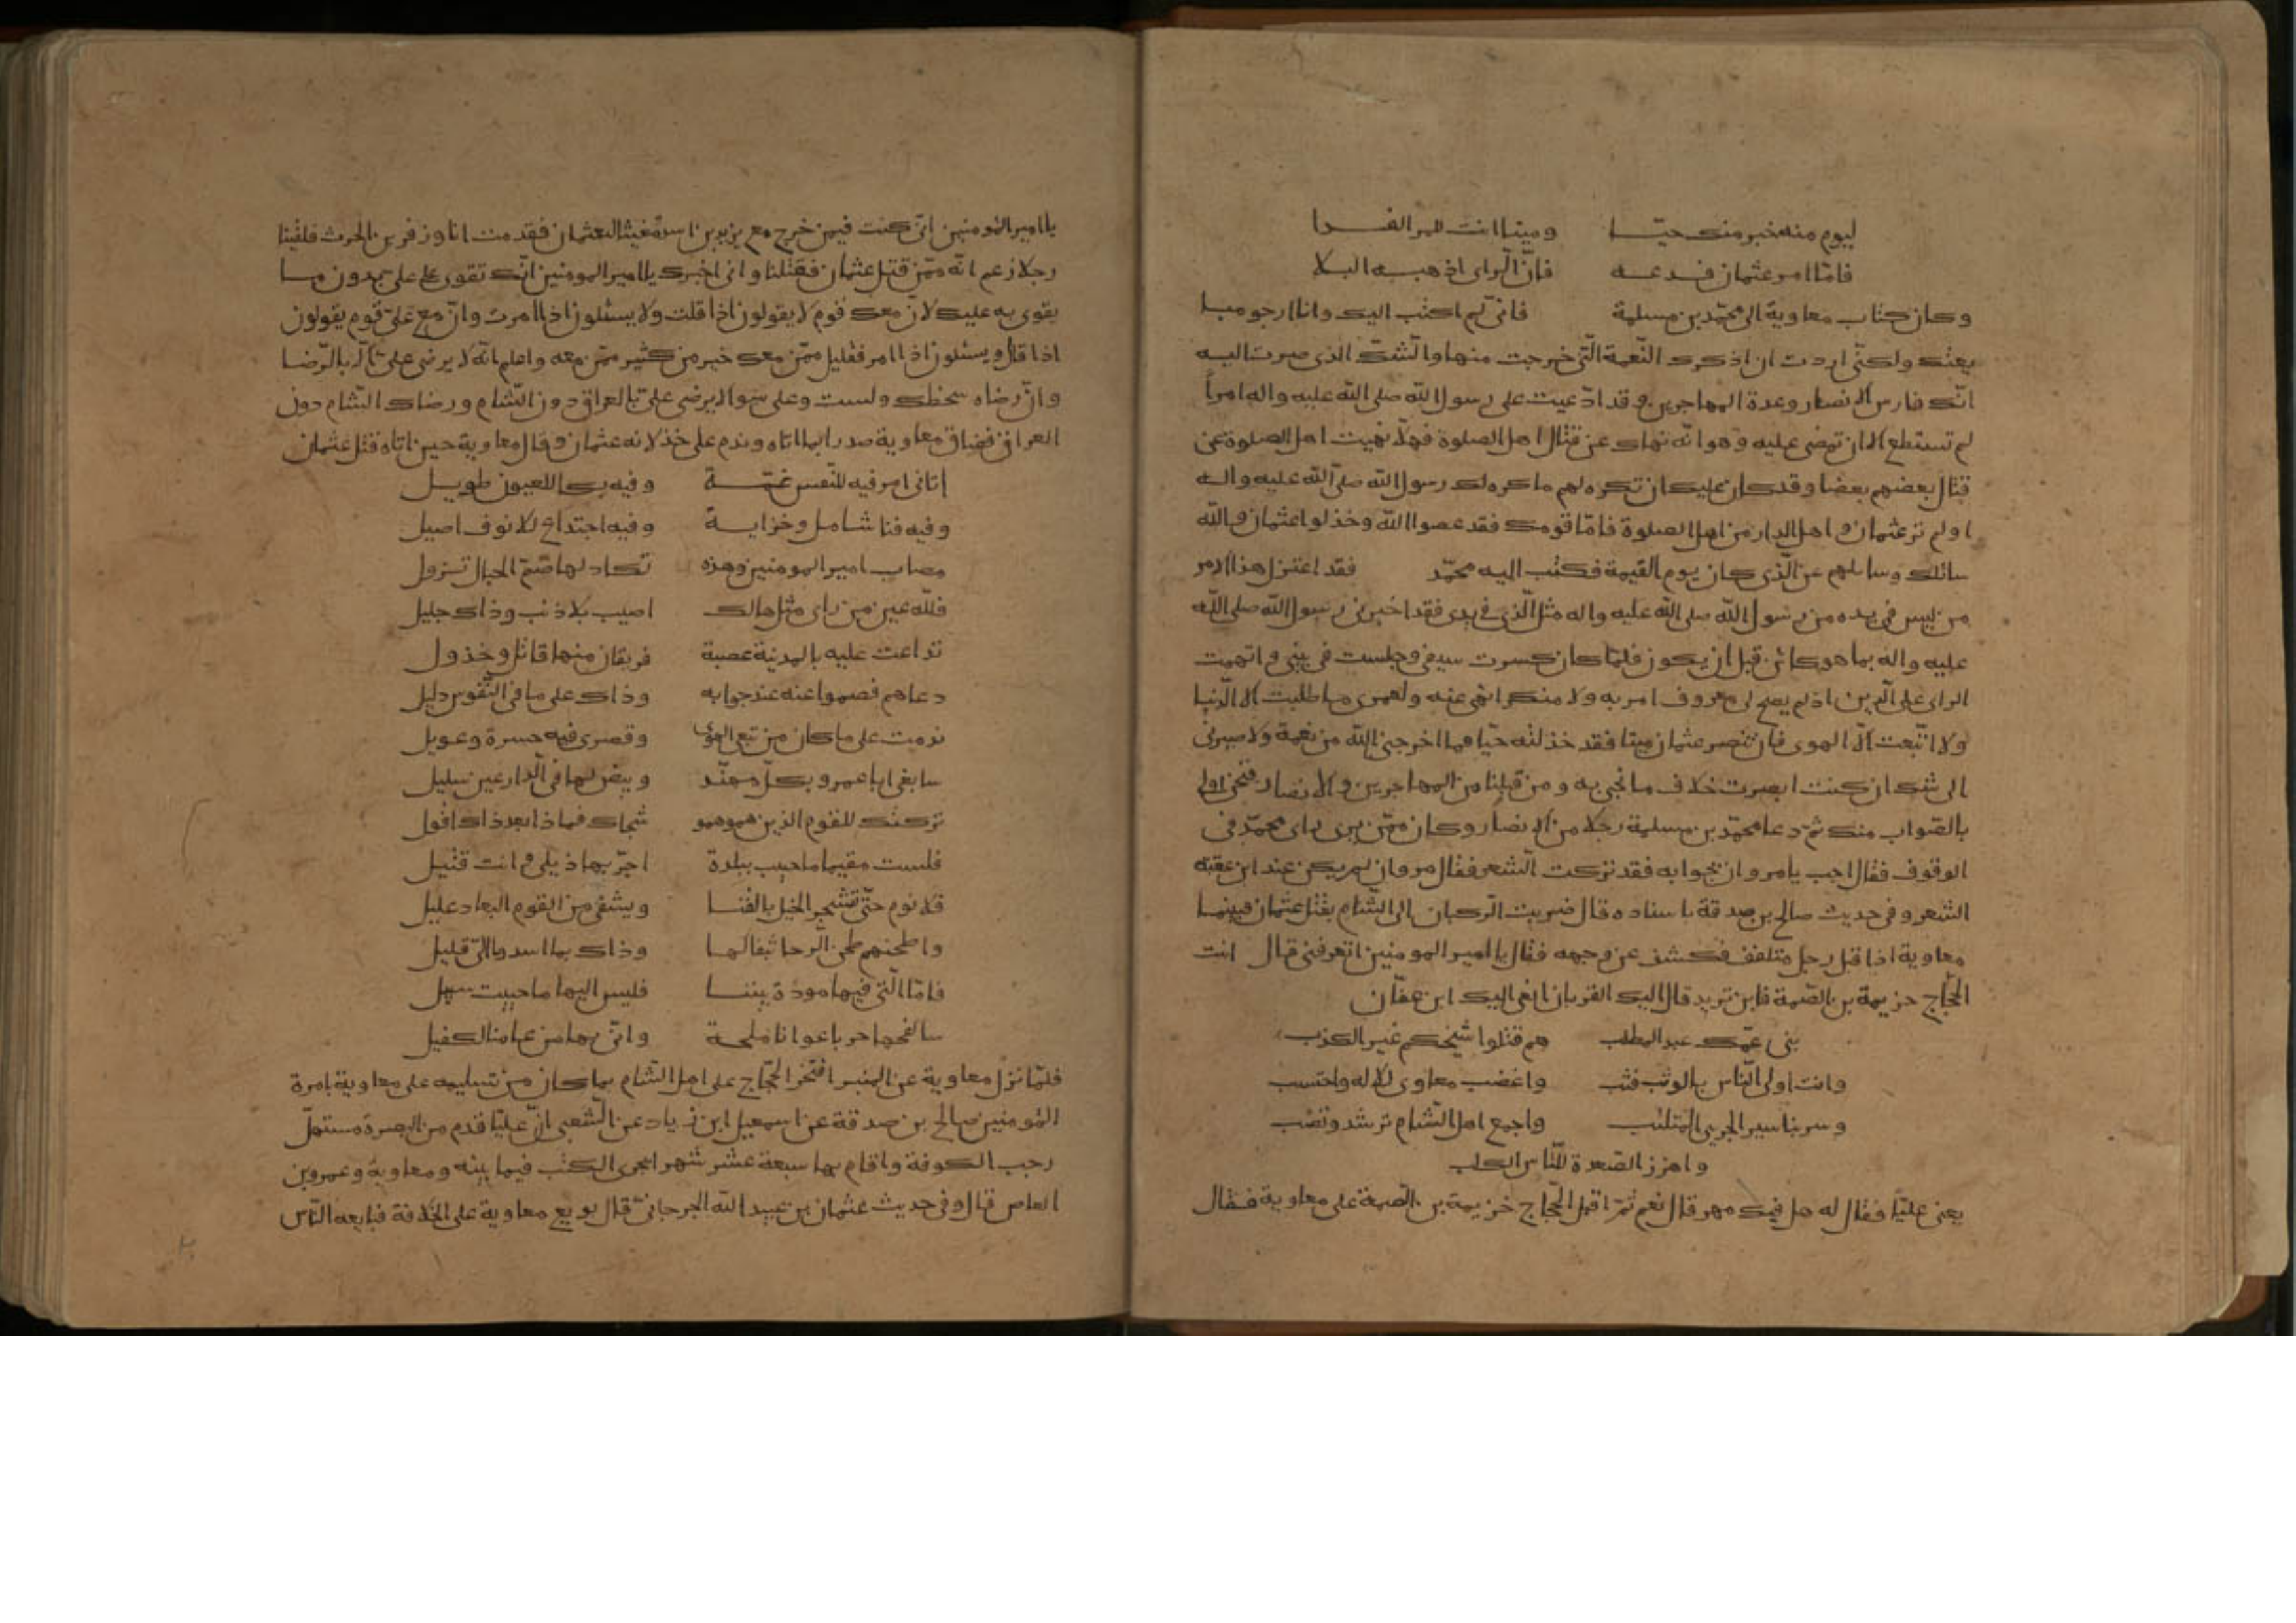 ليوم منه خير منك حيّا وميتا انت للمر الفدا
فامّا امر عثمان فدعه فانّ الراى اذهبه البلا
وكان كتاب معاوية الى محمّد بن مسلمة فانى لم اكتب اليك وانا ارجو مبا
يعتك ولكنّى اردت ان اذكرك النّعمة الّتى خرجت منها والشّكّ الذى صرت اليه
انّك فارس الانصار وعدة المهاجرين وقد ادّعيت على رسول الله صلى الله عليه واله امراً
لم تستطع الا ان تمضى عليه وهو انّه نهاك عن قتال اهل الصلوة فهلّا نهيت اهل الصلوة عن
قتال بعضهم بعضا وقد كان عليك ان تكره لهم ما كره لك رسول الله صلّى الله عليه واله
اولم تر عثمان واهل الدار من اهل الصلوة فامّا قومك فقد عصوا الله وخذلوا عثمان والله
سائلك وسايلهم عن الّذى كان يوم القيمة فكتب اليه محمّد فقد اعتزل هذا الامر
من ليس فى يده من رسول الله صلى الله عليه واله مثل الّذى فى يدى فقد اخبرنى رسول الله صلى الله
عليه واله بما هو كائن قبل ان يكون فلمّا كان كسرت سيفى وجلست فى بيتى واتهمت
الراى على الّدين اذ لم يصح لى معروف امر به ولا منكر انهى عنه ولعمرى ما طلبت الا الدّنيا
ولا اتّبعت الّا الهوى فان تنصر عثمان ميتا فقد خذلته حيّا فما اخرجنى الله من نعمة ولا صيرنى
الى شك ان كنت ابصرت خلاف ما تحبى به ومن قبلنا من المهاجرين والانصار فنحن اولى
بالصّواب منك ثمّ دعا محمّد بن مسلمة رجلا من الانصار وكان ممّن يرى راى محمّد فى
الوقوف فقال اجب يا مروان بجوابه فقد تركت الشّعر فقال مروان لم يكن عند ابن عقبة
الشعر وفى حديث صالح بن صدقة باسناده قال ضربت الرّكبان الى الشّام بقتل عثمان فبينما
معاوية اذ اقبل رجل متلفف فكشف عن وجهه فقال يا امير المومنين اتعرفنى قال انت
الحجّاج خزيمة بن الصّمة فاين تريد قال اليك القربان انعى اليك ابن عفّان
بنى عمّك عبد المطلب هم قتلوا شيخكم غير الكذب
وانت اولى النّاس بالوثب فثب واغضب معاوى للاله واحتسب
وسر بنا سير الجرىء المتلئب واجمع اهل الشّام ترشد وتصب
واهزز الصّعدة للنّاس الكلب
يعنى عليّا فقال له هل فيك مهر قال نعم ثمّ اقبل الحجّاج خزيمة بن الصّمة على معاوية فقال
يا امير المؤمنين انّى كنت فيمن خرج مع يزيد بن اسد مغيثا لعثمان فقدمت انا وزفر بن الحرث فلقينا
رجلا زعم انّه ممّن قتل عثمان فقتلنا وانى اخبرك يا امير المومنين انّك تقوى على على بدون ما
يقوى به عليك لانّ معك قوم لا يقولون اذا قلت ولا يسئلون اذا امرت وانّ مع علىّ قوم يقولون
اذا قال ويسئلون اذا امر فقليل ممّن معك خير من كثير ممّن معه واعلم انّه لا يرضى على الّا بالرّضا
وانّ رضاه سخطك ولست وعلى سوا لا يرضى علىّ بالعراق دون الشّام ورضاك الشام دون
العراق فضاق معاوية صدرا بما اتاه وندم على خذلانه عثمان وقال معاوية حين اتاه قتل عثمان
اتانى امر فيه للنّفس غمّة وفيه بكا للعيون طويل
وفيه فنا شامل وخزاية وفيه اجتداع للانوف اصيل
مصاب امير المومنين وهذه تكاد لها صّم الجبال تزول
فلله عين من راى مثل هالك اصيب بلا ذنب وذاك جليل
تداعت عليه بالمدينة عصبة فريقان منها قاتل وخذول
دعاهم فصموا عنه عند جوابه وذاك على ما فى النّفوس دليل
ندمت على ما كان من تبع الهوى وقصرى فيه حسرة وعويل
سابغى ابا عمرو بكلّ مهنّد وبيض لها فى الّدارعين سليل
تركتك للقوم الذين همو همو شجاك فماذا بعد ذاك اقول
فلست مقيما ما حييت ببلدة اجرّ بها ذيلى وانت قتيل
فلا نوم حتّى تشجر الخيل بالقنا ويشفى من القوم البعاد عليل
واطحنهم طحن الرّحا بثفالها وذاك بما اسدوا الىّ قليل
فامّا الّتى فيها مودة بيننا فليس اليها ما حييت سبيل
سالقحها حربا عوانا ملحة وانّى بها من عامنا لكفيل
فلمّا نزل معاوية عن المنبر افتخر الحجّاج على اهل الشّام بما كان من تسليمه على معاوية بامرة
المؤمنين صالح بن صدقة عن اسمعيل ابن زياد عن الشّعبى انّ عليّا قدم من البصرة مستهلّ
رجب الكوفة واقام بها سبعة عشر شهرا يجرى الكتب فيما بينه ومعاوية وعمرو بن
العاص قال وفى حديث عثمان بن عبيد الله الجرجانىّ قال بويع معاوية على الخلافة فبايعه النّاس